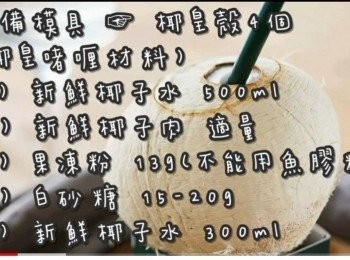 備模具 ☞ 椰皇殼4個
椰皇啫喱材料)
) 新鮮椰子水 500ml
) 新鮮椰子肉 適量
) 果凍粉 13g(不能用魚膠
) 白砂糖 15-20g
) 新鮮椰子水 300ml